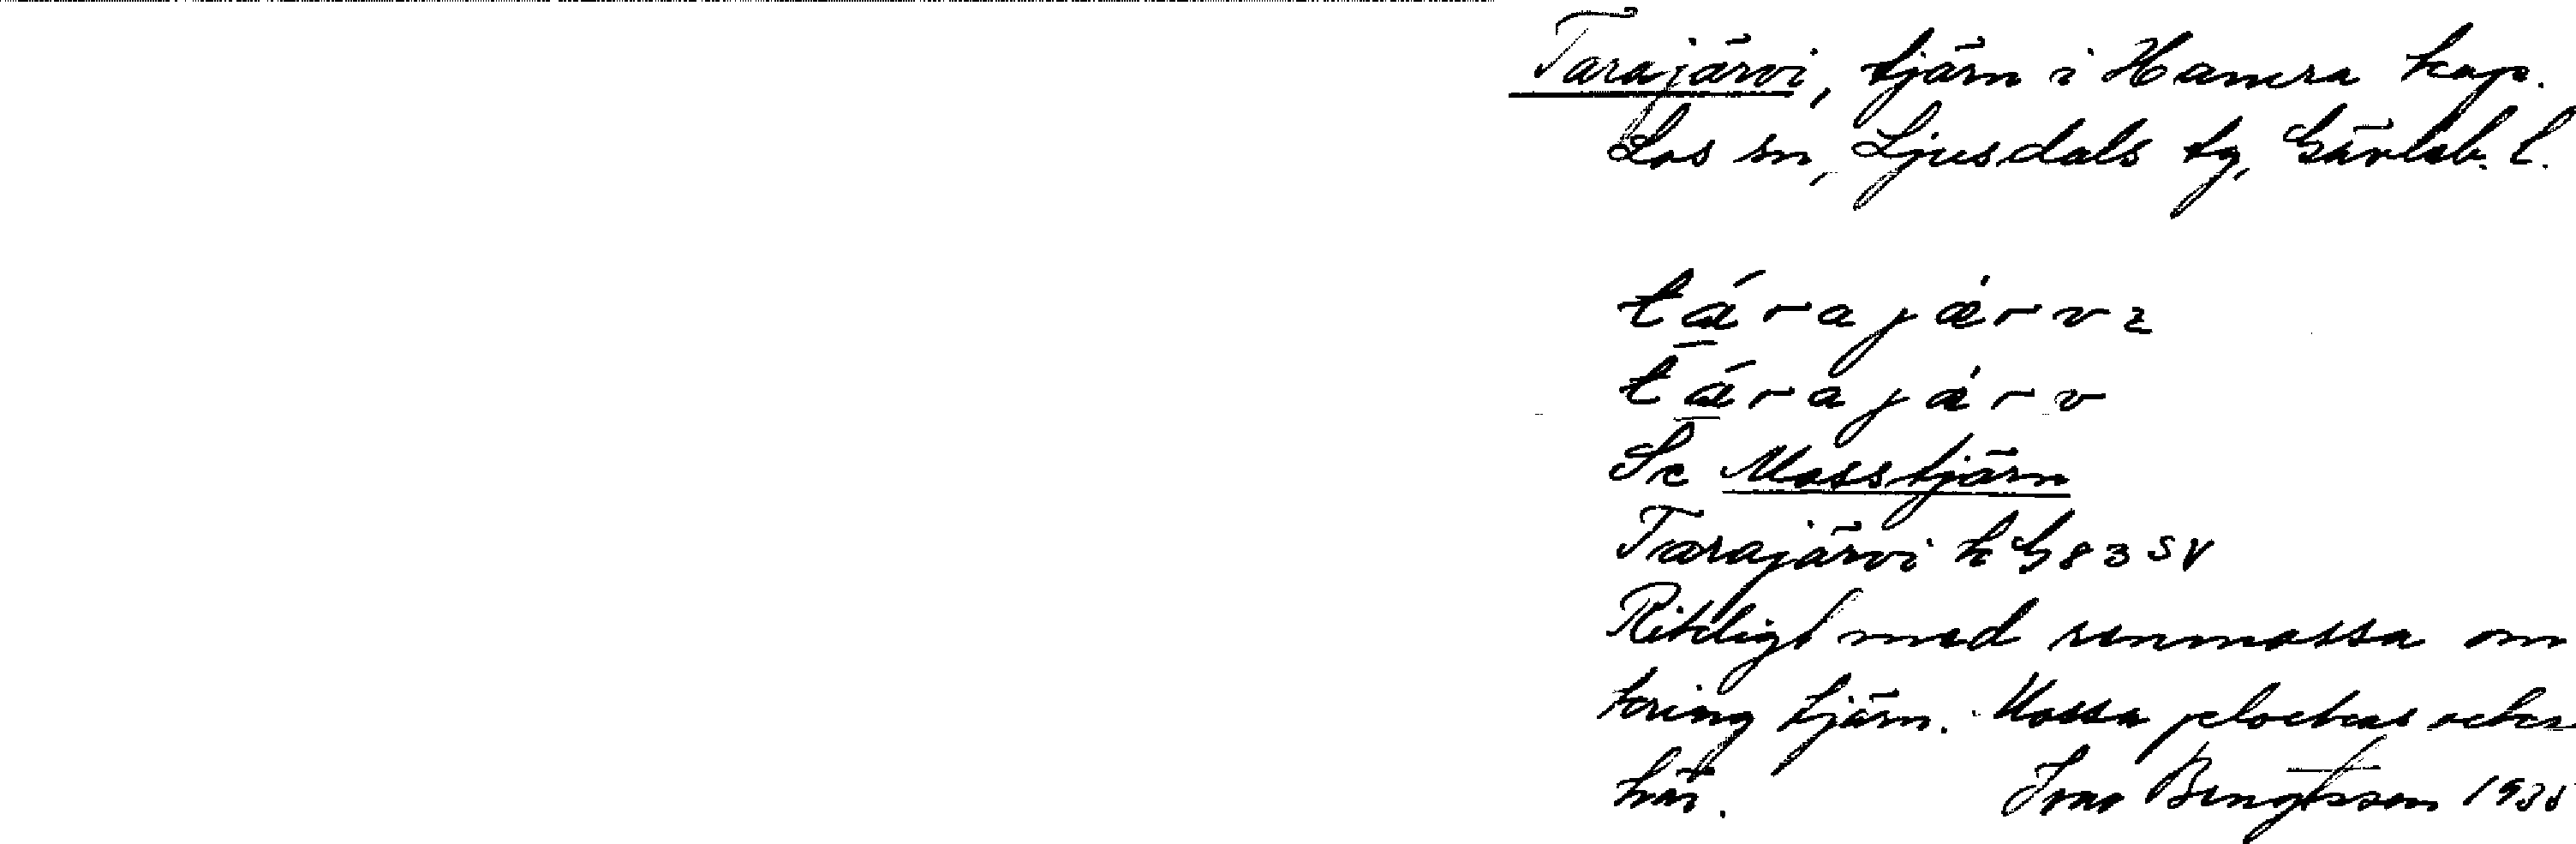 Tarajärvi, tjärn i Hamra kap.
Los sn, Ljusdals tg, Gävleb. l.
tárajärvɩ
tárajárv
Se Mosstjärn
Tarajärvi k G 83 SV
Rikligt med renmossa om
kring tjärn. Mossa plockas
här. Ivar Bengtsson 1935